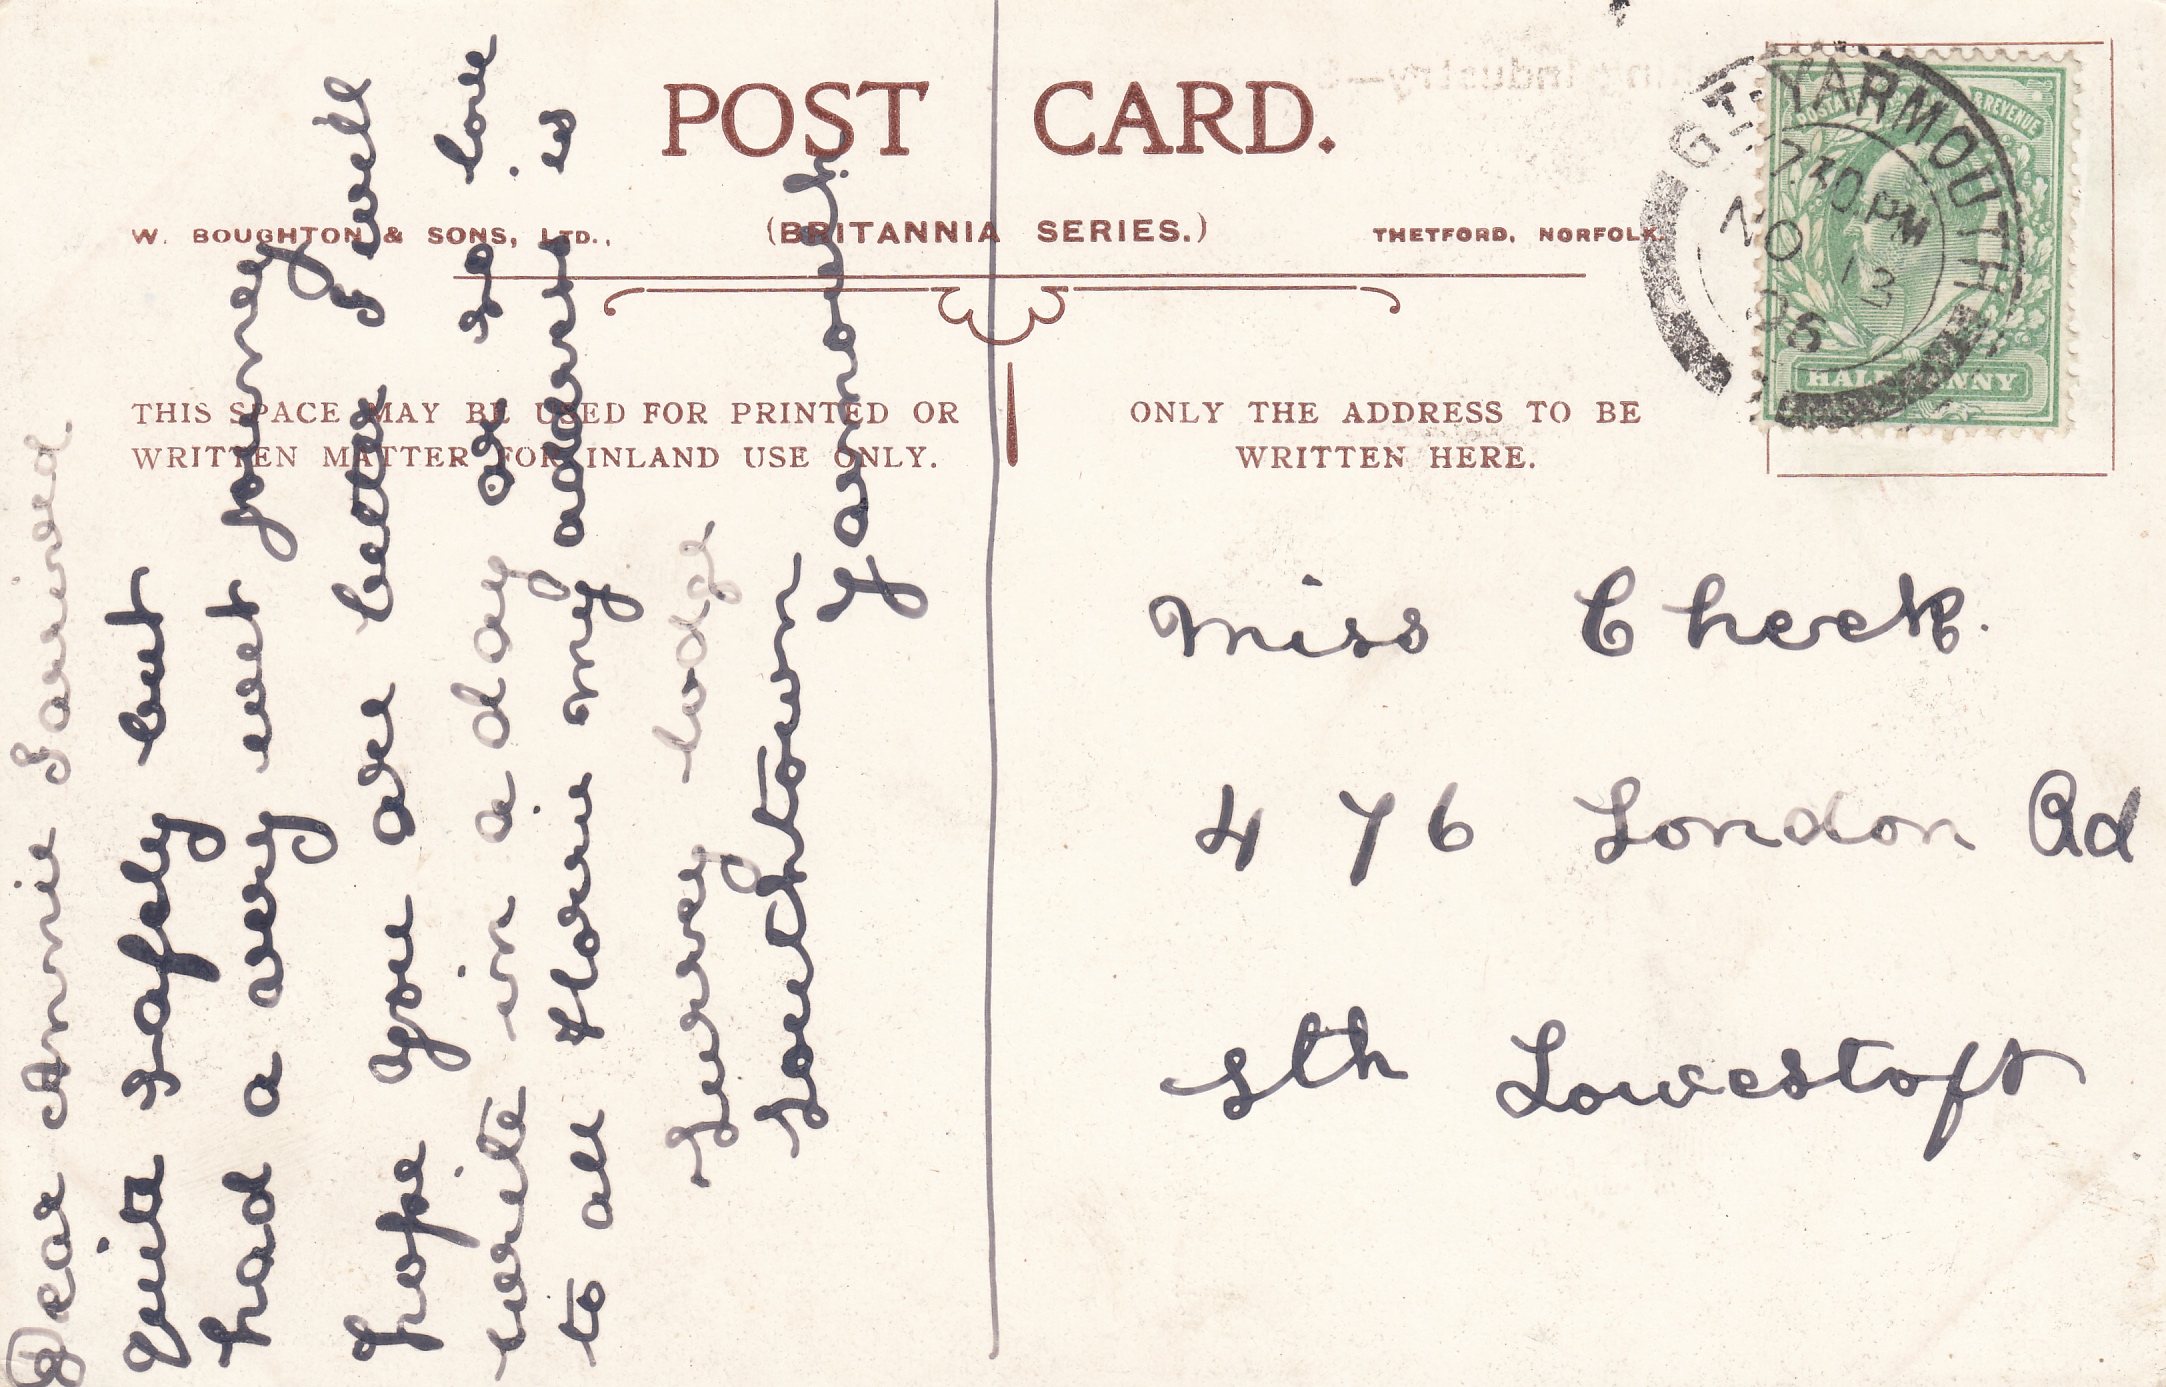 POST CARD.
W. BOUGHTON & SONS, LTD., (BRITANNIA SERIES.) THETFORD, NORFOLK.
THIS SPACE MAY BE USED FOR PRINTED OR
WRITTEN MATTER FOR INLAND USE ONLY.
ONLY THE ADDRESS TO BE
WRITTEN HERE.
GT YARMOUTH
7.30 PM
NO 13
06
POSTAGE & REVENUE
HALFPENNY
Dear Annie I arrived
quite safely but
had a very wet journey
hope you are better I well
write in a day or so love
to all Florie my address is
Surrey lodge
Southtown
Yarmouth
Miss Cheek.
476 London Rd
Sth Lowestoft